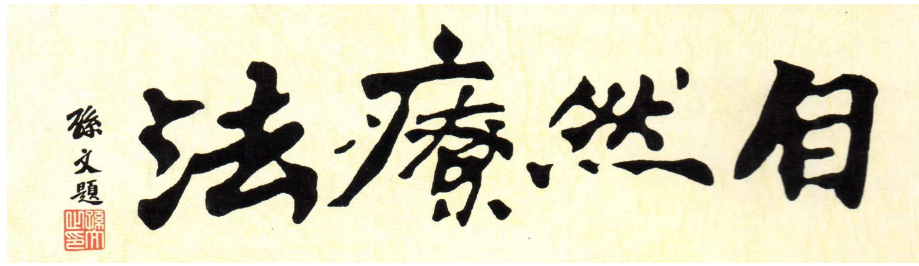 自然療法
孫文題
孫文之印